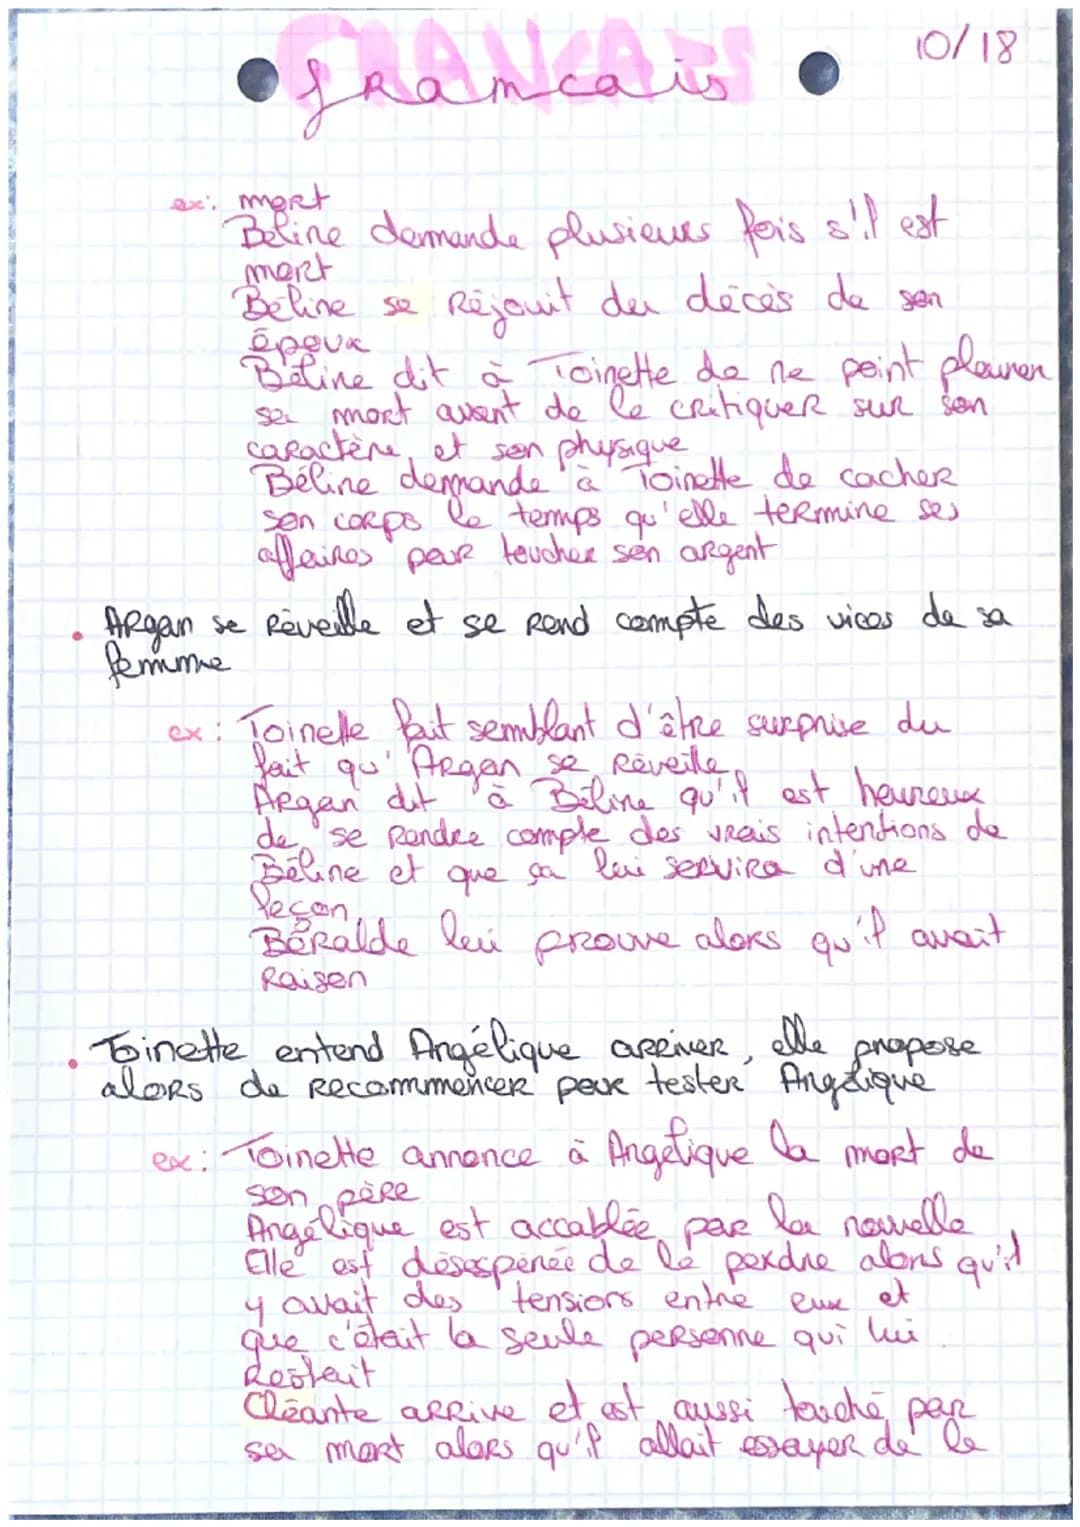 FRANCAIS
10/18
francais
ex: mort
Béline demande plusieurs fois s'il est
mort
Béline se réjouit du décès de son
époux
Béline dit à Toinette de ne point pleurer
sa mort avant de le critiquer sur son
caractère, et son physique
Béline demande à Toinette de cacher
son corps le temps qu'elle termine ses
affaires pour toucher son argent
• Argan se réveille et se rend compte des vices de sa
femme
ex: Toinette fait semblant d'être surprise du
fait qu'Argan se réveille
Argan dit à Béline qu'il est heureux
de se rendre compte des vrais intentions de
Béline et que ça lui servira d'une
leçon
Béralde lui prouve alors qu'il avait
raison
• Toinette entend Angélique arriver, elle propose
alors de recommencer pour tester Angélique
ex: Toinette annonce à Angélique la mort de
son père
Angélique est accablée par la nouvelle
Elle est désespérée de le perdre alors qu'il
y avait des tensions entre eux et
que c'était la seule personne qui lui
restait
Cléante arrive et est aussi touché par
sa mort alors qu'il allait essayer de le